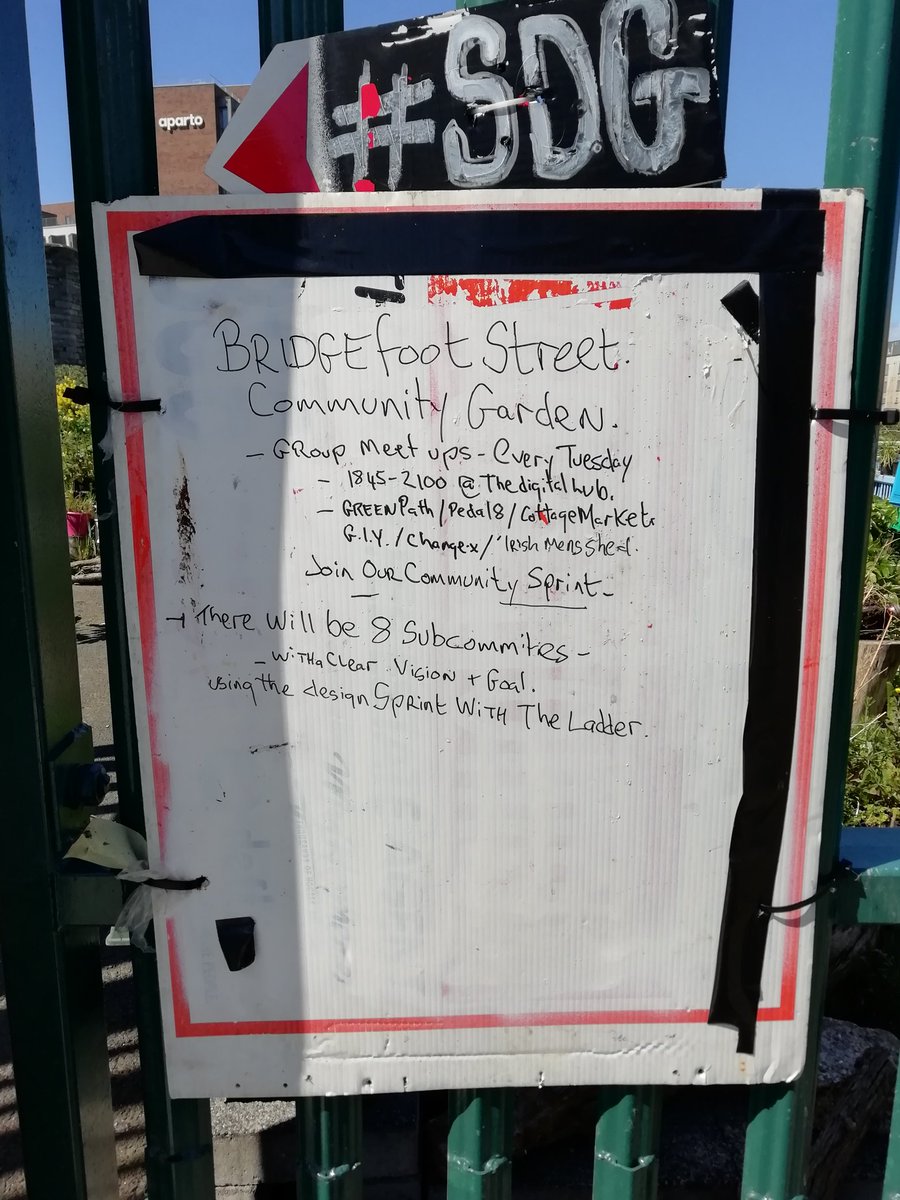 #SDG
aparto
BRIDGEfoot Street.
Community Garden.
- GRoup Meet ups - Every Tuesday
- 1845-2100 @ Thedigital hub.
- GREEN Path / Pedal 8 / Cottage Markets
G.I.Y. / Change-x / 'Irish Mens Shed.
Join OUR Community Sprint -
→ There Will be 8 Subcommities -
- WiTH a Clear Vision + Goal.
using the design Sprint WiTH The Ladder.